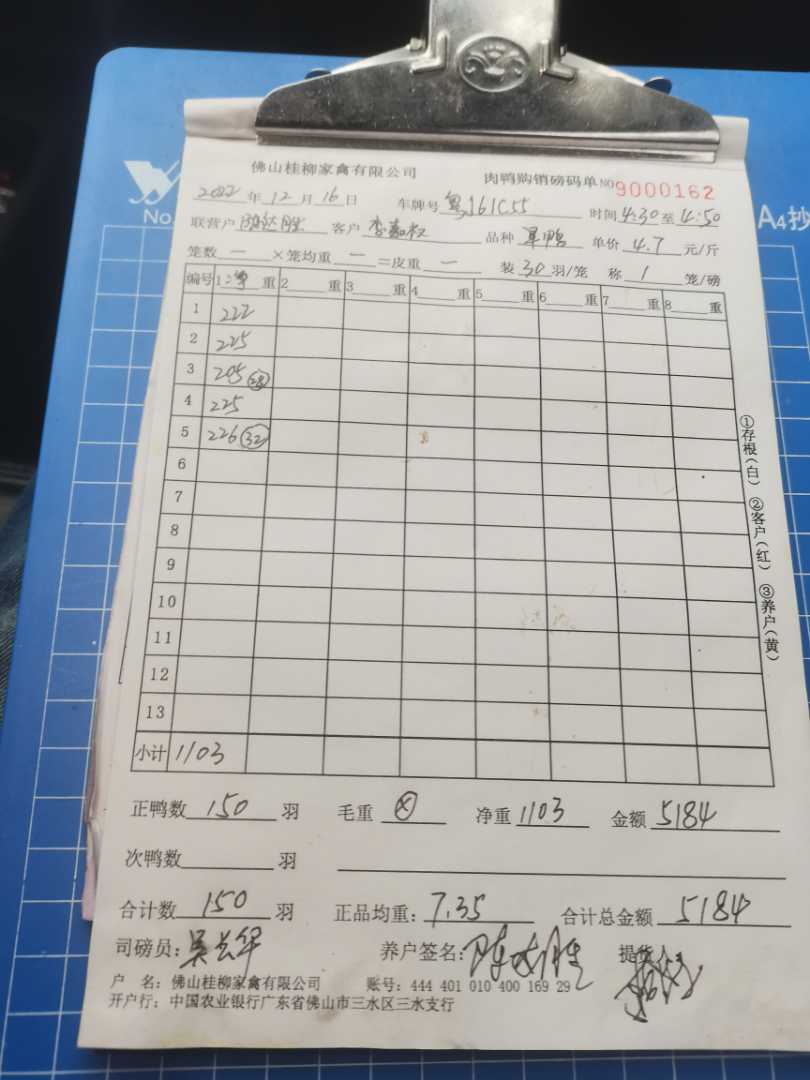 佛山桂柳家禽有限公司 肉鸭购销磅码单 NO 9000162
2022 年 12 月 16 日 车牌号 粤J61C55 时间 4:30 至 4:50
联营户 客户 品种 单价 4.7 元/斤
笼数 一 ×笼均重 一 =皮重 一 装 30 羽/笼 称 1 笼/磅
编号 1 净 重 2 重 3 重 4 重 5 重 6 重 7 重 8 重
1 222
2 225
3 205 28
4 225
5 226 32
6
7
8
9
10
11
12
13
小计 1103
正鸭数 150 羽 毛重 ⊗ 净重 1103 金额 5184
次鸭数 羽
合计数 150 羽 正品均重: 7.35 合计总金额 5184
司磅员: 养户签名: 提货人
户 名: 佛山桂柳家禽有限公司 账号: 444 401 010 400 169 29
开户行: 中国农业银行广东省佛山市三水区三水支行
①存根(白) ②客户(红) ③养户(黄)
No.
A4抄